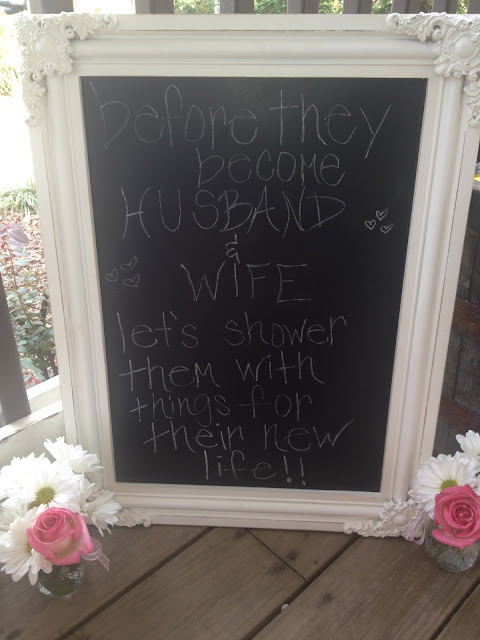 before they
become
HUSBAND
&
WIFE
let's shower
them with
things for
their new
life!!